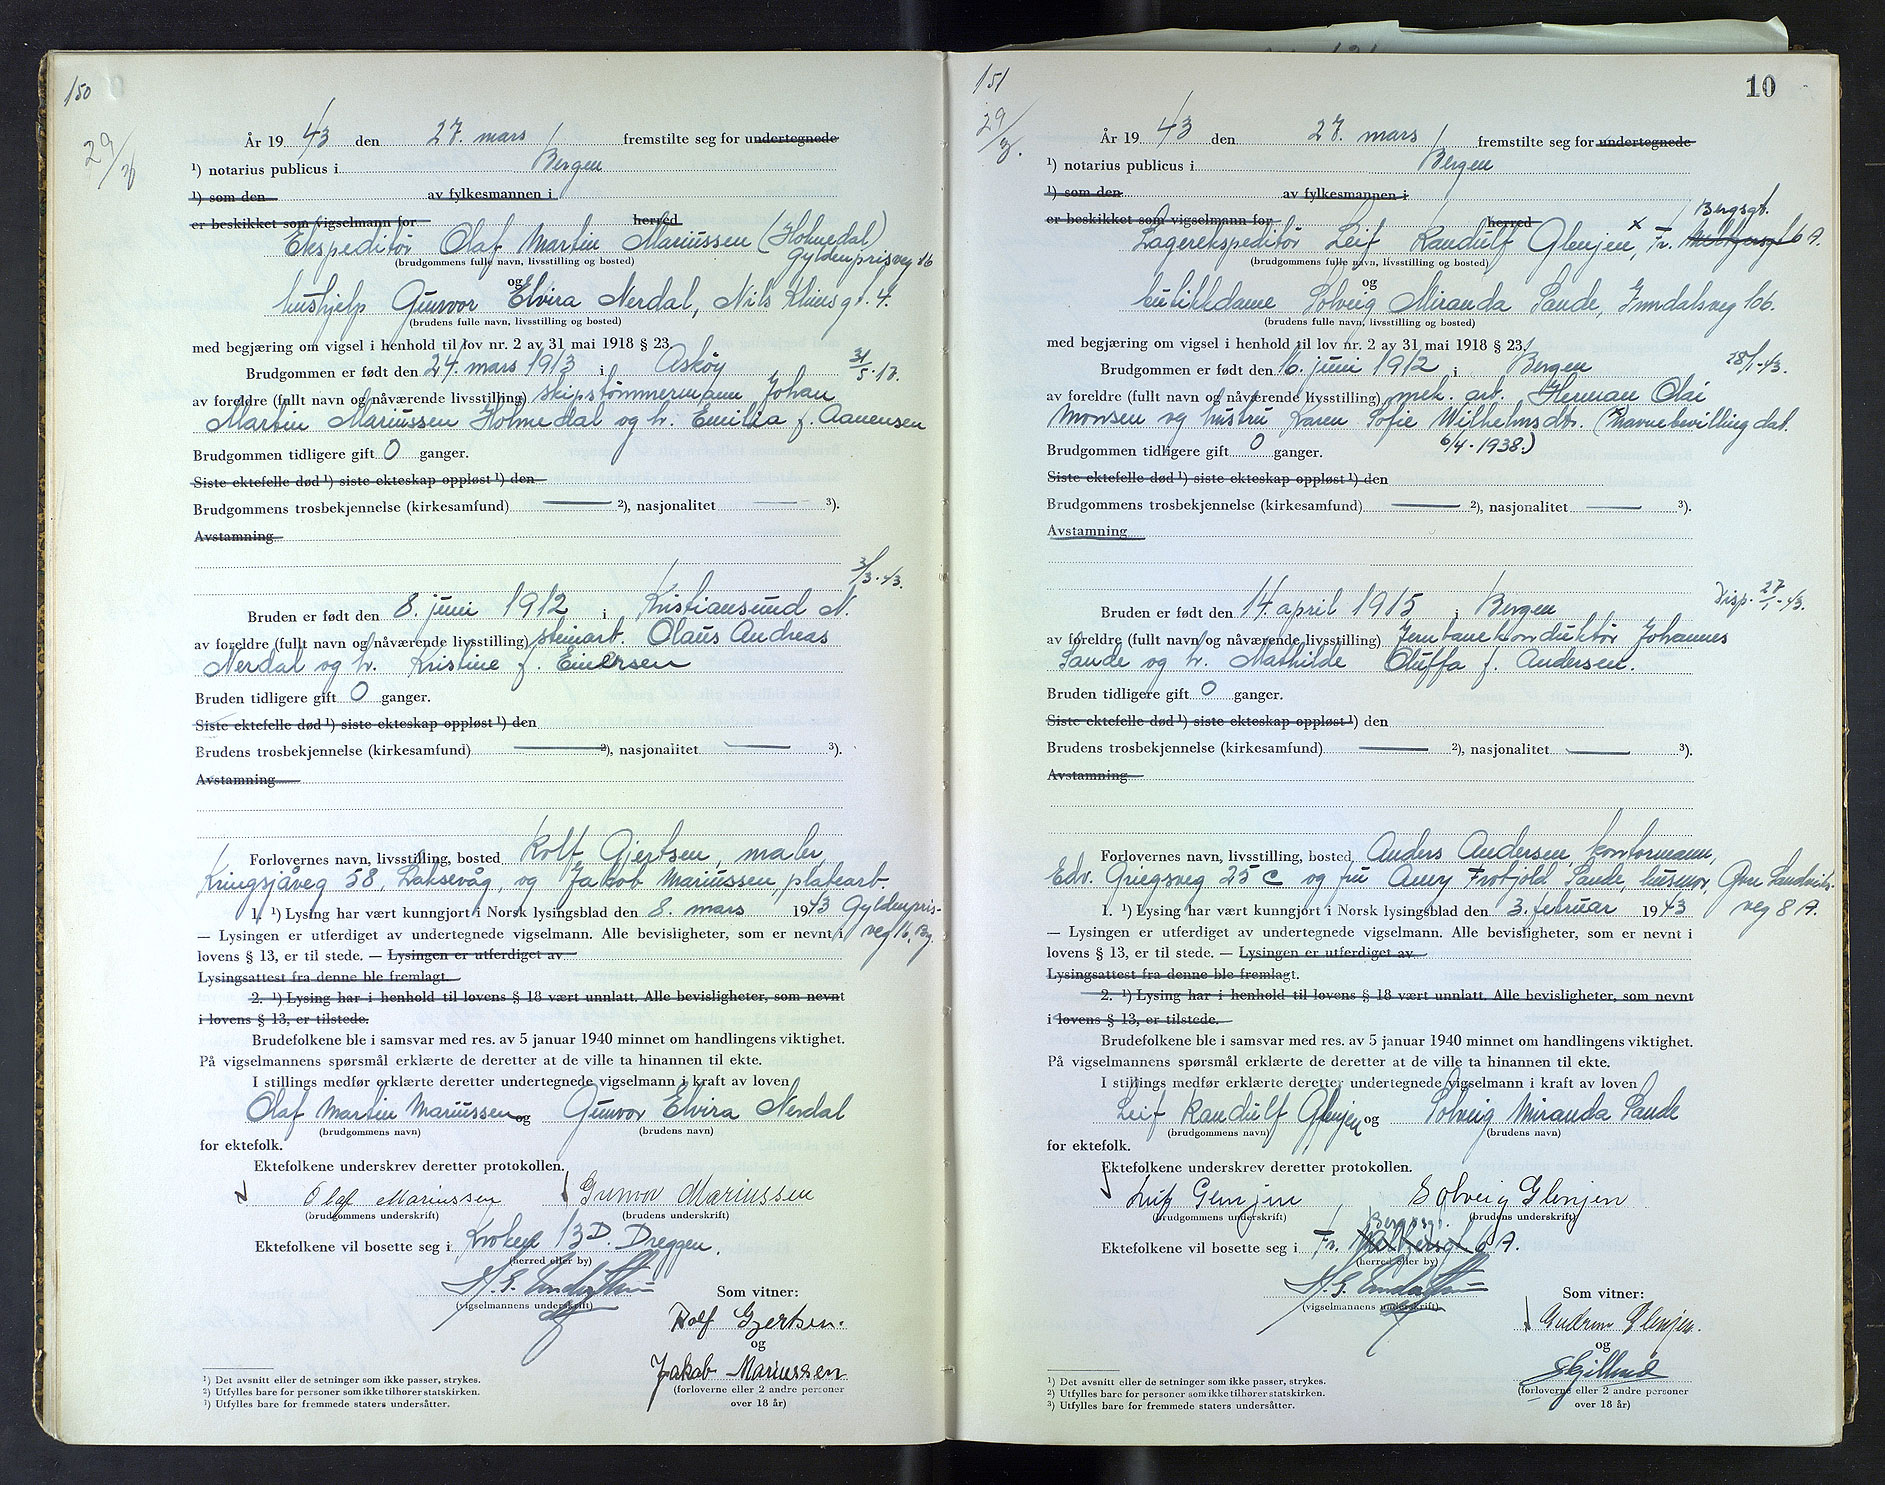 150
29/3
År 19 43 den 27. mars fremstilte seg for undertegnede
¹) notarius publicus i Bergen
¹) som den av fylkesmannen i
er beskikket som vigselmann for herred
Ekspeditør Olaf Martin Mariussen (Holmedal)
Gyldenprisveg 16
(brudgommens fulle navn, livsstilling og bosted)
og
hushjelp Gunvor Elvira Nerdal, Nils Klims gt. 4.
(brudens fulle navn, livsstilling og bosted)
med begjæring om vigsel i henhold til lov nr. 2 av 31 mai 1918 § 23.
Brudgommen er født den 24. mars 1913 i Askøy 31/5.13.
av foreldre (fullt navn og nåværende livsstilling) skipstømmermann Johan
Martin Mariussen Holmedal og h. Emilia f. Aanensen
Brudgommen tidligere gift 0 ganger.
Siste ektefelle død ¹) siste ekteskap oppløst ¹) den
Brudgommens trosbekjennelse (kirkesamfund) ²), nasjonalitet ³).
Avstamning
3/3.43.
Bruden er født den 8. juni 1912 i Kristiansund N.
av foreldre (fullt navn og nåværende livsstilling) steinarb. Olaus Andreas
Nerdal og h. Kristine f. Einersen
Bruden tidligere gift 0 ganger.
Siste ektefelle død ¹) siste ekteskap oppløst ¹) den
Brudens trosbekjennelse (kirkesamfund) ²), nasjonalitet ³).
Avstamning
Forlovernes navn, livsstilling, bosted Rolf Gjertsen, maler,
Kringsjåveg 58, Laksevåg, og Jakob Mariussen, platearb.
1. ¹) Lysing har vært kunngjort i Norsk lysingsblad den 8. mars 1943 Gyldenpris-
veg 16, By.
— Lysingen er utferdiget av undertegnede vigselmann. Alle bevisligheter, som er nevnt i
lovens § 13, er til stede. — Lysingen er utferdiget av
Lysingsattest fra denne ble fremlagt
2. ¹) Lysing har i henhold til lovens § 18 vært unnlatt. Alle bevisligheter, som nevnt
i lovens § 13, er tilstede.
Brudefolkene ble i samsvar med res. av 5 januar 1940 minnet om handlingens viktighet.
På vigselmannens spørsmål erklærte de deretter at de ville ta hinannen til ekte.
I stillings medfør erklærte deretter undertegnede vigselmann i kraft av loven
Olaf Martin Mariussen og Gunvor Elvira Nerdal
(brudgommens navn) (brudens navn)
for ektefolk.
Ektefolkene underskrev deretter protokollen.
Olaf Mariussen Gunvor Mariussen
(brudgommens underskrift) (brudens underskrift)
Ektefolkene vil bosette seg i Kroken 13D. Dreggen.
(herred eller by)
(vigselmannens underskrift)
Som vitner:
Rolf Gjertsen.
og
Jakob Mariussen
(forloverne eller 2 andre personer
over 18 år)
¹) Det avsnitt eller de setninger som ikke passer, strykes.
²) Utfylles bare for personer som ikke tilhører statskirken.
³) Utfylles bare for fremmede staters undersåtter.
151
10
29/3.
År 19 43 den 27. mars fremstilte seg for undertegnede
¹) notarius publicus i Bergen
¹) som den av fylkesmannen i
er beskikket som vigselmann for herred
Bergsgt.
Lagerekspeditør Leif Randulf Glenjen, x Fr. Meltzersgt 6 A.
(brudgommens fulle navn, livsstilling og bosted)
og
butikkdame Solveig Miranda Sande, Inndalsveg 106.
(brudens fulle navn, livsstilling og bosted)
med begjæring om vigsel i henhold til lov nr. 2 av 31 mai 1918 § 23.
Brudgommen er født den 16. juni 1912 i Bergen 28/1-43.
av foreldre (fullt navn og nåværende livsstilling) mek. arb. Herman Olai
Monsen og hustru Karen Sofie Wilhelmsdtr. (x Navnebevilling dat.
6/4-1938.)
Brudgommen tidligere gift 0 ganger.
Siste ektefelle død ¹) siste ekteskap oppløst ¹) den
Brudgommens trosbekjennelse (kirkesamfund) ²), nasjonalitet ³).
Avstamning
Disp. 27/1-43.
Bruden er født den 14. april 1915 i Bergen
av foreldre (fullt navn og nåværende livsstilling) Jernbanekonduktør Johannes
Sande og h. Mathilde Oluffa f. Andersen.
Bruden tidligere gift 0 ganger.
Siste ektefelle død ¹) siste ekteskap oppløst ¹) den
Brudens trosbekjennelse (kirkesamfund) ²), nasjonalitet ³).
Avstamning
Forlovernes navn, livsstilling, bosted Anders Andersen, kontormann,
Edv. Griegsveg 25 C og fru Amy Frotjold Sande, husmor, Øvre Sandviks-
veg 8 A.
1. ¹) Lysing har vært kunngjort i Norsk lysingsblad den 3. februar 1943
— Lysingen er utferdiget av undertegnede vigselmann. Alle bevisligheter, som er nevnt i
lovens § 13, er til stede. — Lysingen er utferdiget av
Lysingsattest fra denne ble fremlagt.
2. ¹) Lysing har i henhold til lovens § 18 vært unnlatt. Alle bevisligheter, som nevnt
i lovens § 13, er tilstede.
Brudefolkene ble i samsvar med res. av 5 januar 1940 minnet om handlingens viktighet.
På vigselmannens spørsmål erklærte de deretter at de ville ta hinannen til ekte.
I stillings medfør erklærte deretter undertegnede vigselmann i kraft av loven
Leif Randulf Glenjen og Solveig Miranda Sande
(brudgommens navn) (brudens navn)
for ektefolk.
Ektefolkene underskrev deretter protokollen.
Leif Glenjen Solveig Glenjen
(brudgommens underskrift) (brudens underskrift)
Bergsgt.
Ektefolkene vil bosette seg i Fr. Meltzersgt 6 A.
(herred eller by)
(vigselmannens underskrift)
Som vitner:
Gudrun Glenjen.
og
(forloverne eller 2 andre personer
over 18 år)
¹) Det avsnitt eller de setninger som ikke passer, strykes.
²) Utfylles bare for personer som ikke tilhører statskirken.
³) Utfylles bare for fremmede staters undersåtter.